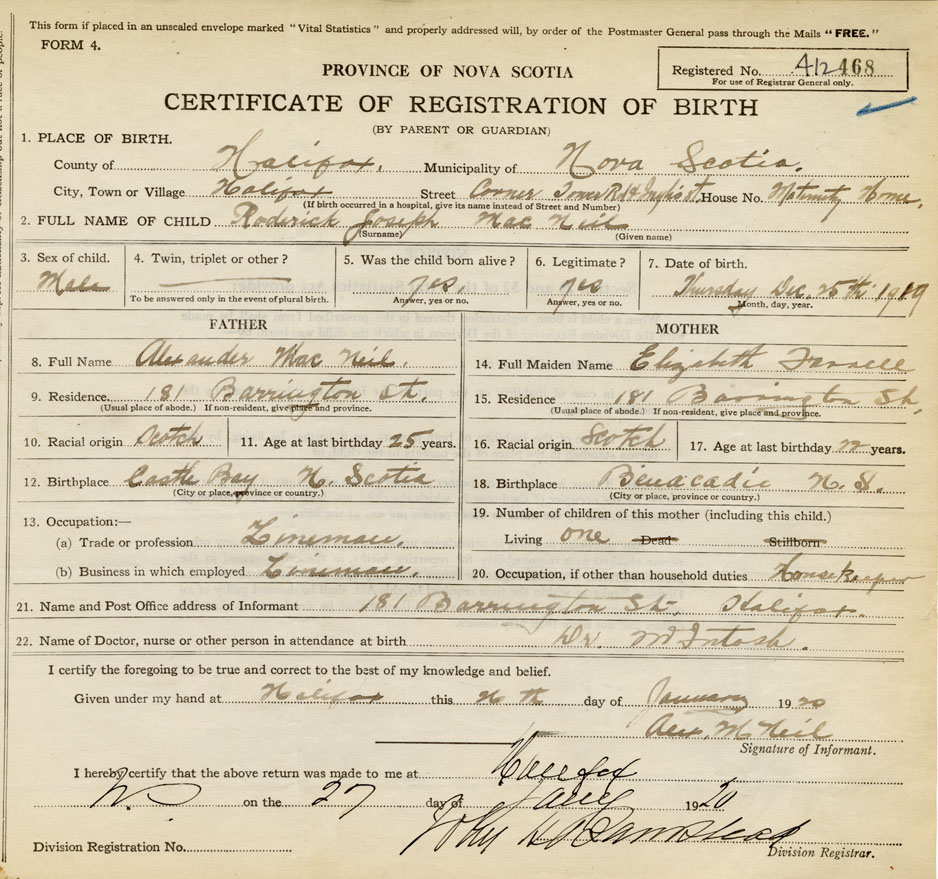 This form if placed in an unsealed envelope marked "Vital Statistics" and properly addressed will, by order of the Postmaster General pass through the Mails "FREE."
FORM 4.
Registered No. 412468
For use of Registrar General only.
PROVINCE OF NOVA SCOTIA
CERTIFICATE OF REGISTRATION OF BIRTH
(BY PARENT OR GUARDIAN)
1. PLACE OF BIRTH.
County of Halifax. Municipality of Nova Scotia.
City, Town or Village Halifax Street Corner Tower Rd & Inglis St, House No. Maternity Home,
(If birth occurred in a hospital, give its name instead of Street and Number)
2. FULL NAME OF CHILD Roderick Joseph Mac Neil
(Surname) (Given name)
3. Sex of child. 4. Twin, triplet or other? 5. Was the child born alive? 6. Legitimate? 7. Date of birth.
Male yes. yes Thursday Dec. 25th 1919
To be answered only in the event of plural birth. Answer, yes or no. Answer, yes or no. Month, day, year.
FATHER MOTHER
8. Full Name Alexander Mac Neil. 14. Full Maiden Name Elizabeth
9. Residence 181 Barrington St. 15. Residence 181 Barrington St,
(Usual place of abode.) If non-resident, give place and province. (Usual place of abode.) If non-resident, give place and province.
10. Racial origin Scotch 11. Age at last birthday 25 years. 16. Racial origin Scotch 17. Age at last birthday 22 years.
12. Birthplace Castle Bay N. Scotia 18. Birthplace Benacadie N. S.
(City or place, province or country.) (City or place, province or country.)
13. Occupation:— 19. Number of children of this mother (including this child.)
(a) Trade or profession Lineman. Living one Dead Stillborn
(b) Business in which employed Lineman. 20. Occupation, if other than household duties Housekeeper
21. Name and Post Office address of Informant 181 Barrington St. Halifax.
22. Name of Doctor, nurse or other person in attendance at birth Dr. McIntosh.
I certify the foregoing to be true and correct to the best of my knowledge and belief.
Given under my hand at Halifax this th day of January 1920
Alex. McNeil
Signature of Informant.
I hereby certify that the above return was made to me at Halifax
N.S on the 27 day of Jany 1920
John
Division Registration No. Division Registrar.